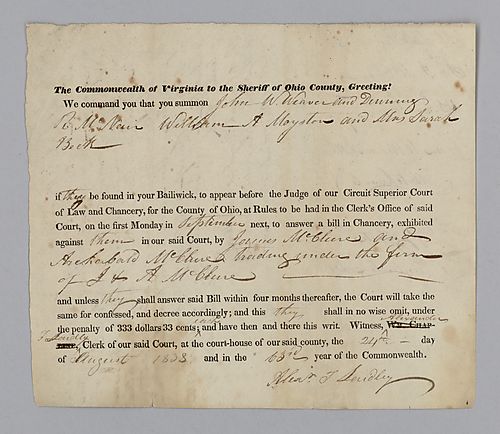 The Commonwealth of Virginia to the Sheriff of Ohio County, Greeting!
We command you that you summon John W. Weaver and Denning
R. McNair William A Moyston and Mrs Sarah
Beck
if they be found in your Bailiwick, to appear before the Judge of our Circuit Superior Court
of Law and Chancery, for the County of Ohio, at Rules to be had in the Clerk's Office of said
Court, on the first Monday in September next, to answer a bill in Chancery, exhibited
against them in our said Court, by James McClure and
Archibald McClure trading under the firm
of J & A McClure
and unless they shall answer said Bill within four months thereafter, the Court will take
the same for confessed, and decree accordingly; and this they shall in no wise omit, under
the penalty of 333 dollars 33 cents each and have then and there this writ. Witness, Wm. Chap- Alexander
line, T Loudly Clerk of our said Court, at the court-house of our said county, the 24th day
of August 1838 and in the 63rd year of the Commonwealth.
Alexr. T Loudly